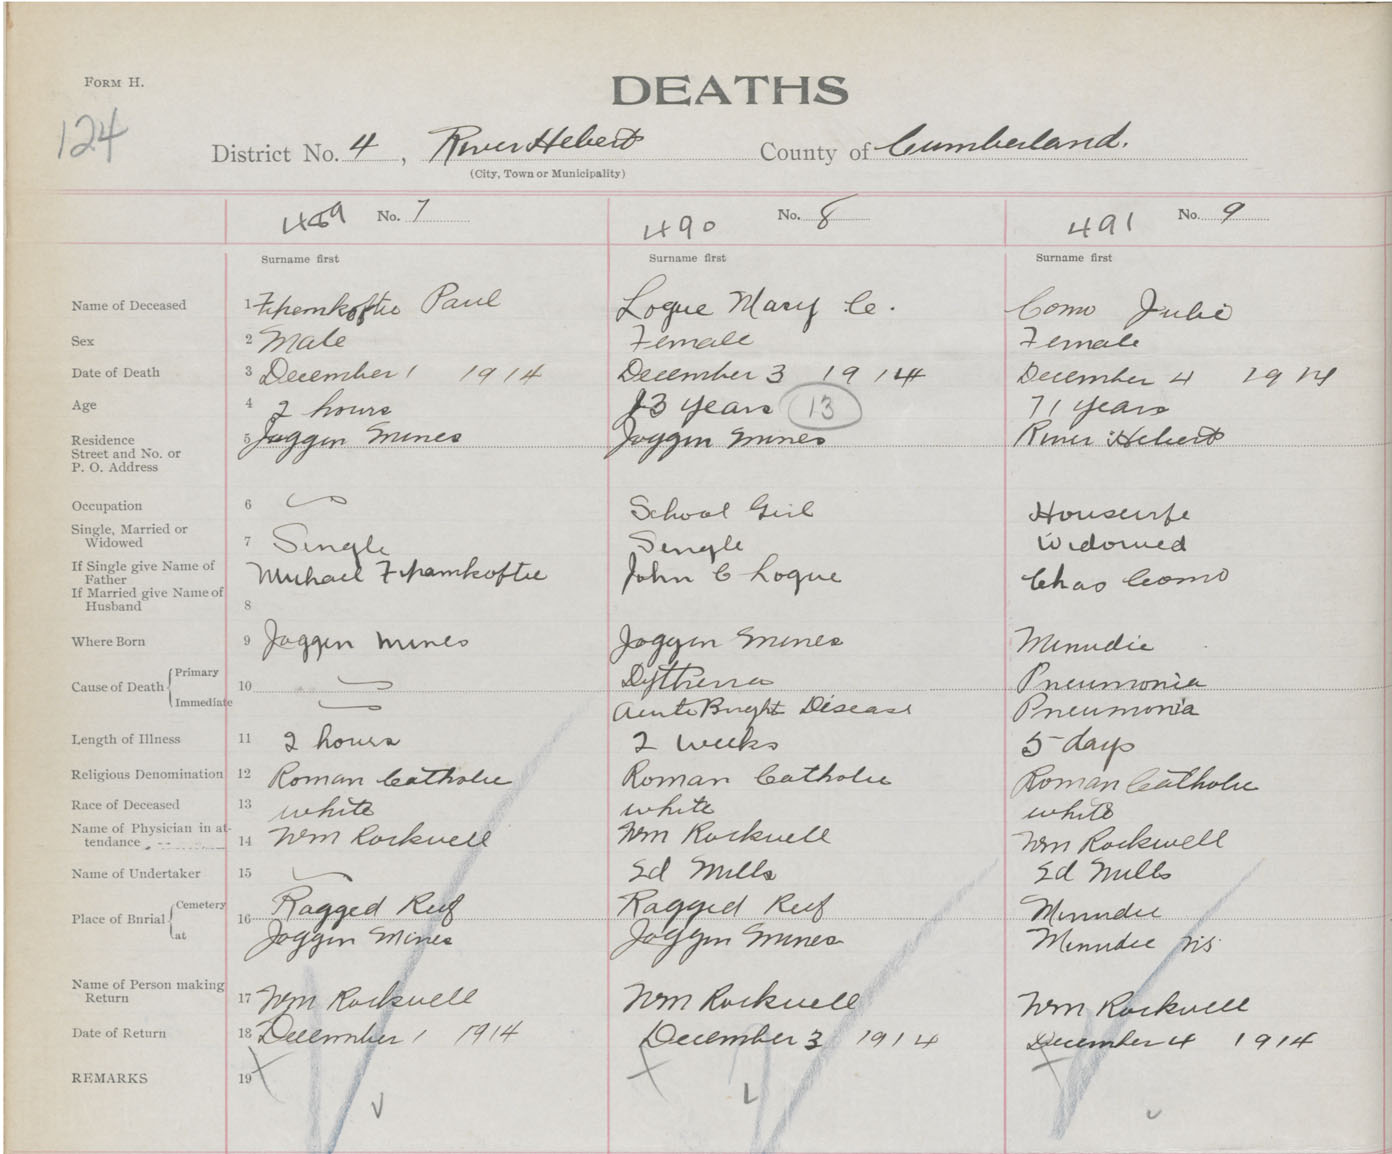 FORM H.
DEATHS
124
District No. 4, River Hebert County of Cumberland.
(City, Town or Municipality)
489 No. 7 490 No. 8 491 No. 9
Surname first Surname first Surname first
Name of Deceased 1 Paul Logue Mary C. Como Julie
Sex 2 Male Female Female
Date of Death 3 December 1 1914 December 3 1914 December 4 1914
Age 4 2 hours 13 years 13 71 years
Residence
Street and No. or
P. O. Address
5 Joggin Mines Joggin Mines River Hebert
Occupation 6 School Girl Housewife
Single, Married or
Widowed
7 Single Single Widowed
If Single give Name of
Father
Michael John C Logue Chas Como
If Married give Name of
Husband
8
Where Born 9 Joggin Mines Joggin Mines Minudie
Cause of Death { Primary 10 Pneumonia
Immediate Acute Bright Disease Pneumonia
Length of Illness 11 2 hours 2 weeks 5 days
Religious Denomination 12 Roman Catholic Roman Catholic Roman Catholic
Race of Deceased 13 white white white
Name of Physician in at-
tendance
14 Wm Rockwell Wm Rockwell Wm Rockwell
Name of Undertaker 15 Ed Mills Ed Mills
Place of Burial { Cemetery 16 Ragged Reef Ragged Reef Minudie
at Joggin Mines Joggin Mines Minudie NS
Name of Person making
Return
17 Wm Rockwell Wm Rockwell Wm Rockwell
Date of Return 18 December 1 1914 December 3 1914 December 4 1914
REMARKS 19